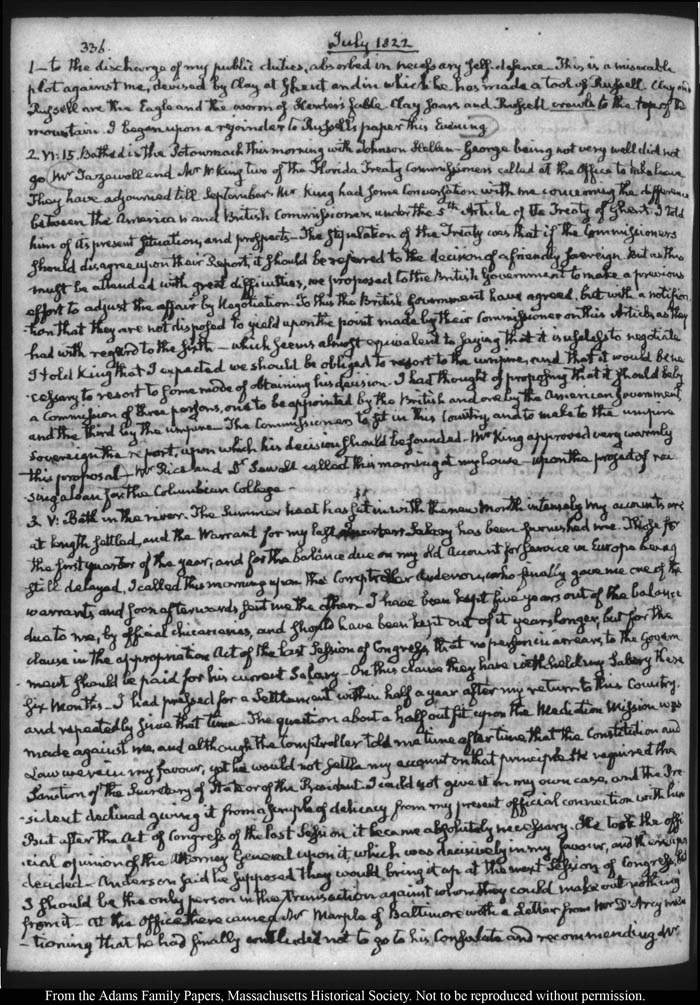 336.
July 1822
1— to the discharge of my public duties, absorbed in necessary self-defence— This is a miserable
plot against me, devised by Clay at Ghent and in which he has made a tool of Russell. Clay and
Russell are the Eagle and the worm of Herder's fable Clay soars and Russell crawls to the top of the
mountain. I began upon a rejoinder to Russell's paper this Evening
2. VI:15. Bathed in the Potowmack this morning with Johnson Hellen— George being not very well did not
go. Mr Tazewell and Mr W. King two of the Florida Treaty Commissioners called at the Office to take leave.
They have adjourned till September. Mr King had some Conversation with me concerning the difference
between the American and British Commissioners under the 5th Article of the Treaty of Ghent. I told
him of its present situation, and prospects— The stipulation of the Treaty was that if the Commissioners
should disagree upon their Report, it should be referred to the decision of a friendly sovereign. But as this
must be attended with great difficulties, we proposed to the British Government to make a previous
effort to adjust the affair by Negotiation. To this the British Government have agreed, but with a notifica
tion that they are not disposed to yield upon the point made by their Commissioner on this Article, as they
had with regard to the — which seems almost equivalent to saying that it is useless to negotiate
I told King that I expected we should be obliged to resort to the umpire, and that it would be ne
-cessary to resort to some mode of obtaining his decision. I had thought of proposing that it should be by
a Commission of three persons, one to be appointed by the British and one by the American Government,
and the third by the umpire— The Commissioners to sit in this Country, and to make to the umpire
sovereign the report, upon which his decision should be founded— Mr King approved very warmly
this proposal— Mr Rice and Dr Sewall called this morning at my house— upon the project of rai
-sing a loan for the Columbian College—
3. V: Bath in the river. The Summer heat has set in with the new Month intensely. My accounts are
at length settled, and the Warrant for my last Quarter's Salary has been furnished me. Those for
the first quarter of the year, and for the balance due on my old Account for service in Europe being
still delayed, I called this morning upon the Comptroller Anderson, who finally gave me one of the
warrants and soon afterwards sent me the other. I have been kept five years out of the balance
due to me, by official chicaneries, and should have been kept out of it years longer, but for the
clause in the appropriation Act of the last Session of Congress, that no person in arrears to the Govern
-ment should be paid for his current Salary— On this clause they have withheld my Salary these
six Months— I had pressed for a Settlement within half a year after my return to this Country,
and repeatedly since that time— The question about a half outfit upon the Mediation Mission was
made against me, and although the Comptroller told me time after time that the Constitution and
Law were in my favour, yet he would not settle my account on that principle. He required the
Sanction of the Secretary of State or of the President. I could not give it in my own case, and the Pre
-sident declined giving it from a scruple of delicacy from my present official connection with him
But after the Act of Congress of the last Session it became absolutely necessary. He took the offi
cial opinion of the Attorney General upon it, which was decisively in my favour, and thereupon
decided— Anderson said he supposed they would bring it up at the next Session of Congress, but
I should be the only person in the transaction against whom they could make out nothing
from it— At the Office there came Mr Marple of Baltimore with a Letter from Mr D'Arcy men
-tioning that he had finally concluded not to go to his Consulate and recommending Mr
From the Adams Family Papers, Massachusetts Historical Society. Not to be reproduced without permission.